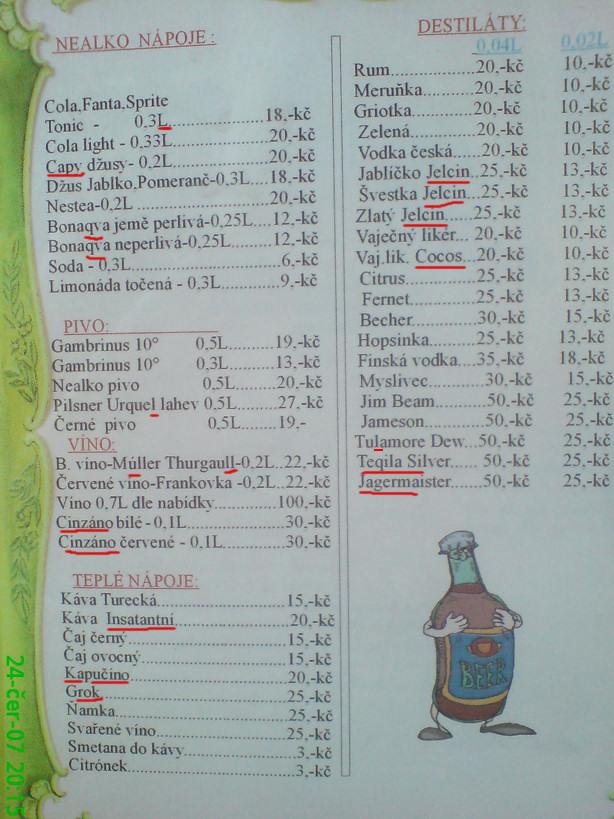 NEALKO NÁPOJE:
Cola,Fanta,Sprite
Tonic - 0,3L.....................18,-kč
Cola light - 0,33L...................20,-kč
Capy džusy- 0,2L...................20,-kč
Džus Jablko,Pomeranč-0,3L....18,-kč
Nestea-0,2L ........................20,-kč
Bonaqva jemě perlivá-0,25L....12,-kč
Bonaqva neperlivá-0,25L.........12,-kč
Soda - 0,3L...........................6,-kč
Limonáda točená - 0,3L............9,-kč
PIVO:
Gambrinus 10° 0,5L........19,-kč
Gambrinus 10° 0,3L........13,-kč
Nealko pivo 0,5L........20,-kč
Pilsner Urquel lahev 0,5L.......27,-kč
Černé pivo 0,5L........19,-
VÍNO:
B. víno-Múller Thurgaull-0,2L..22,-kč
Červené víno-Frankovka -0,2L..22,-kč
Víno 0,7L dle nabídky............100,-kč
Cinzáno bílé - 0,1L...................30,-kč
Cinzáno červené - 0,1L.............30,-kč
TEPLÉ NÁPOJE:
Káva Turecká.......................15,-kč
Káva Insatantní....................20,-kč
Čaj černý............................15,-kč
Čaj ovocný..........................15,-kč
Kapučino............................20,-kč
Grok..................................25,-kč
Ňamka...............................25,-kč
Svařené víno.......................25,-kč
Smetana do kávy...................3,-kč
Citrónek..............................3,-kč
DESTILÁTY:
0,04L 0,02L
Rum...............20,-kč 10,-kč
Meruňka..........20,-kč 10,-kč
Griotka............20,-kč 10,-kč
Zelená.............20,-kč 10,-kč
Vodka česká.....20,-kč 10,-kč
Jablíčko Jelcin..25,-kč 13,-kč
Švestka Jelcin...25,-kč 13,-kč
Zlatý Jelcin......25,-kč 13,-kč
Vaječný likér... 20,-kč 10,-kč
Vaj.lik. Cocos...20,-kč 10,-kč
Citrus..............25,-kč 13,-kč
Fernet.............25,-kč 13,-kč
Becher.............30,-kč 15,-kč
Hopsinka..........25,-kč 13,-kč
Finská vodka....35,-kč 18,-kč
Myslivec..........30,-kč 15,-kč
Jim Beam.........50,-kč 25,-kč
Jameson...........50,-kč 25,-kč
Tulamore Dew...50,-kč 25,-kč
Teqila Silver...... 50,-kč 25,-kč
Jagermaister......50,-kč 25,-kč
BEER
24-čer-07 20:15